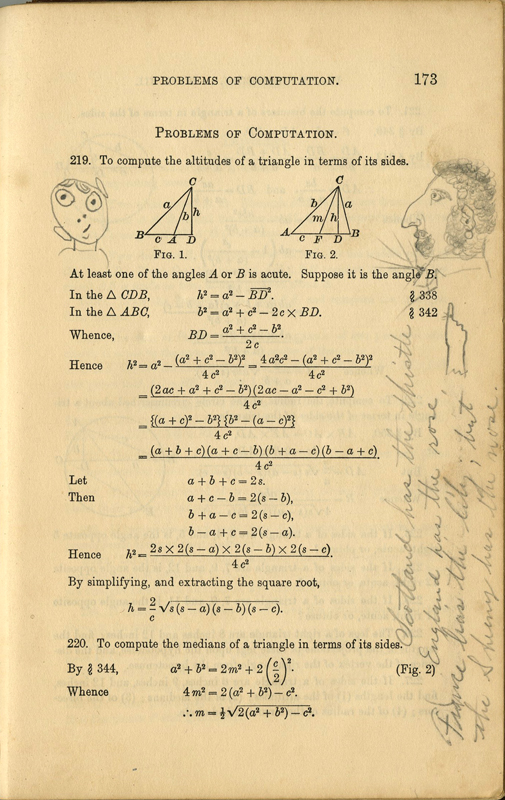 PROBLEMS OF COMPUTATION. 173
PROBLEMS OF COMPUTATION.
219. To compute the altitudes of a triangle in terms of its sides.
C
a b h
B c A D
FIG. 1.
C
b m h a
A c F D B
FIG. 2.
At least one of the angles A or B is acute. Suppose it is the angle B.
In the △ CDB, h² = a² − BD̅². § 338
In the △ ABC, b² = a² + c² − 2c × BD. § 342
Whence, BD = (a² + c² − b²)/2c.
Hence h² = a² − (a² + c² − b²)²/4c² = (4a²c² − (a² + c² − b²)²)/4c²
= (2ac + a² + c² − b²)(2ac − a² − c² + b²)/4c²
= {(a + c)² − b²}{b² − (a − c)²}/4c²
= (a + b + c)(a + c − b)(b + a − c)(b − a + c)/4c².
Let a + b + c = 2s.
Then a + c − b = 2(s − b),
b + a − c = 2(s − c),
b − a + c = 2(s − a).
Hence h² = 2s × 2(s − a) × 2(s − b) × 2(s − c)/4c².
By simplifying, and extracting the square root,
h = 2/c √s(s − a)(s − b)(s − c).
220. To compute the medians of a triangle in terms of its sides.
By § 344, a² + b² = 2m² + 2(c/2)². (Fig. 2)
Whence 4m² = 2(a² + b²) − c².
∴ m = ½√2(a² + b²) − c².
Scotland has the thistle
England has the rose,
France has the lily; but
the Sheeny has the nose.